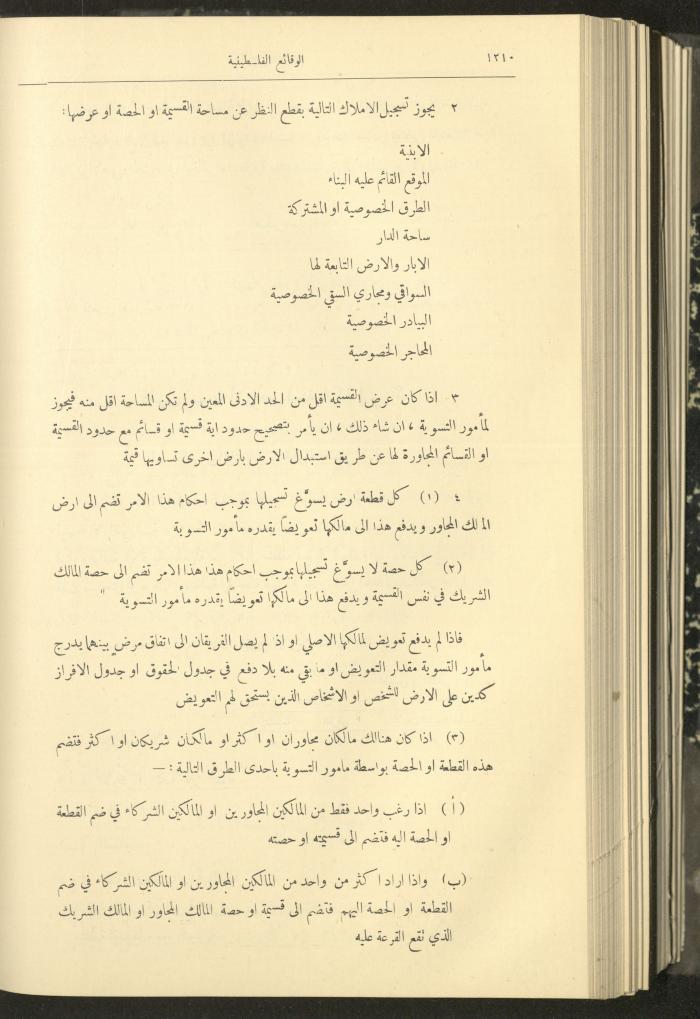 ١٢١٠
الوقائع الفلسطينية
٢ يجوز تسجيل الاملاك التالية بقطع النظر عن مساحة القسيمة او الحصة او عرضها:
الابنية
الموقع القائم عليه البناء
الطرق الخصوصية او المشتركة
ساحة الدار
الابار والارض التابعة لها
السواقي ومجاري السقي الخصوصية
البيادر الخصوصية
المحاجر الخصوصية
٣ اذا كان عرض القسيمة اقل من الحد الادنى المعين ولم تكن المساحة اقل منه فيجوز
لمأمور التسوية ، ان شاء ذلك ، ان يأمر بتصحيح حدود اية قسيمة او قسائم مع حدود القسيمة
او القسائم المجاورة لها عن طريق استبدال الارض بارض اخرى تساويها قيمة
٤ (١) كل قطعة ارض يسوَّغ تسجيلها بموجب احكام هذا الامر تضم الى ارض
المالك المجاور ويدفع هذا الى مالكها تعويضاً يقدره مأمور التسوية
(٢) كل حصة لا يسوَّغ تسجيلها بموجب احكام هذا هذا الامر تضم الى حصة المالك
الشريك في نفس القسيمة ويدفع هذا الى مالكها تعويضاً يقدره مأمور التسوية "
فاذا لم يدفع تعويض لمالكها الاصلي او اذ لم يصل الفريقان الى اتفاق مرضٍ بينهما يدرج
مأمور التسوية مقدار التعويض او ما بقي منه بلا دفع في جدول الحقوق او جدول الافراز
كدين على الارض للشخص او الاشخاص الذين يستحق لهم التعويض
(٣) اذا كان هنالك مالكان مجاوران او اكثر او مالكان شريكان او اكثر فتضم
هذه القطعة او الحصة بواسطة مامور التسوية باحدى الطرق التالية : —
(أ) اذا رغب واحد فقط من المالكين المجاورين او المالكين الشركاء في ضم القطعة
او الحصة اليه فتضم الى قسيمته او حصته
(ب) واذا اراد اكثر من واحد من المالكين المجاورين او المالكين الشركاء في ضم
القطعة او الحصة اليهم فتضم الى قسيمة او حصة المالك المجاور او المالك الشريك
الذي تقع القرعة عليه